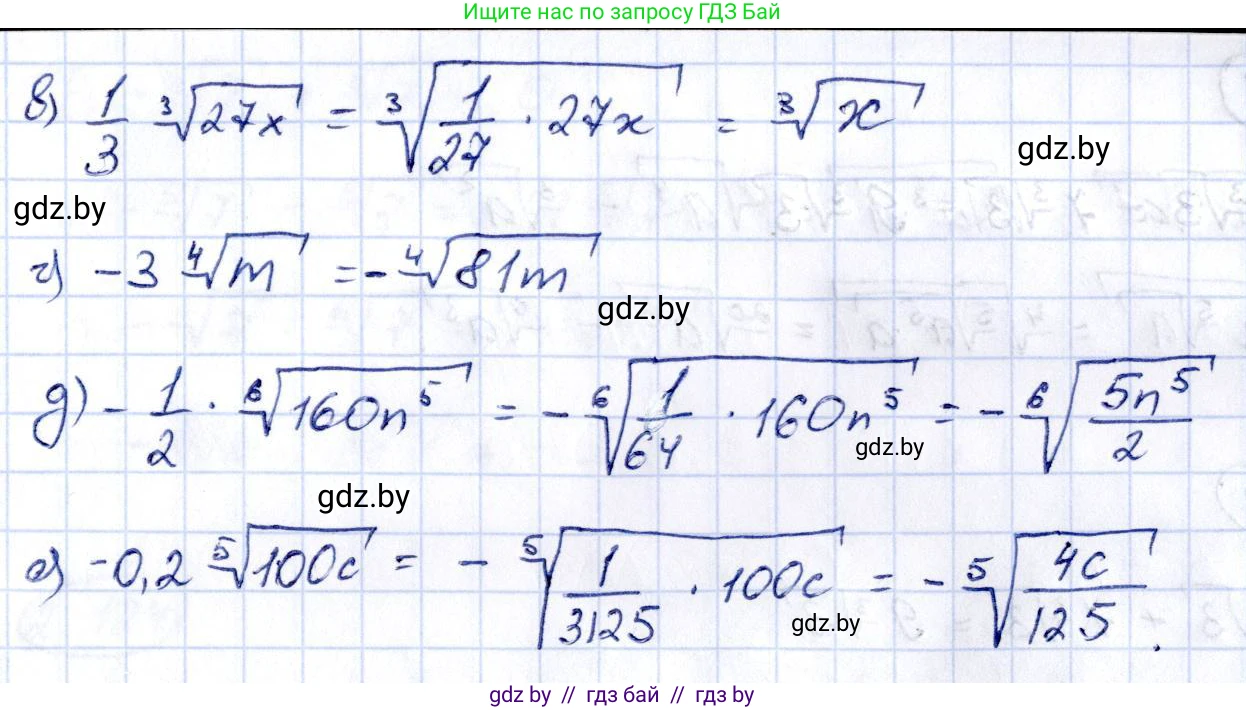 Ищите нас по запросу ГДЗ Бай
в) 1/3 ∛(27x) = ∛(1/27 · 27x) = ∛x
gdz.by
gdz.by
г) -3 ∜m = - ∜(81m)
gdz.by
д) - 1/2 · ⁶√(160n⁵) = - ⁶√(1/64 · 160n⁵) = - ⁶√(5n⁵/2)
gdz.by
gdz.by
е) -0,2 ⁵√(100c) = - ⁵√(1/3125 · 100c) = - ⁵√(4c/125).
gdz.by
gdz by // гдз бай // гдз by